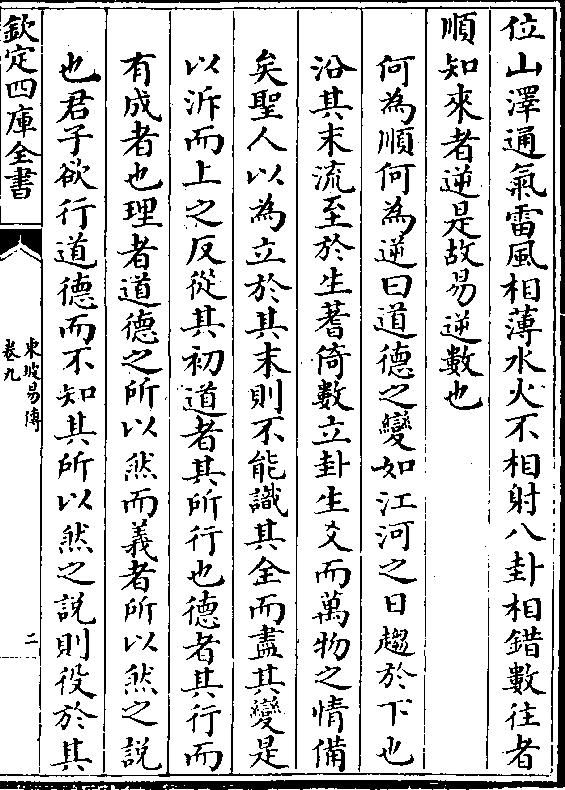 位山澤通氣雷風相薄水火不相射八卦相錯數往者
順知來者逆是故易逆數也
何為順何為逆曰道德之變如江河之日趨於下也
沿其末流至於生蓍倚數立卦生爻而萬物之情備
矣聖人以為立於其末則不能識其全而盡其變是
以泝而上之反從其初道者其所行也德者其行而
有成者也理者道德之所以然而義者所以然之說
也君子欲行道德而不知其所以然之說則役於其
欽定四庫全書
東坡易傳
卷九
二